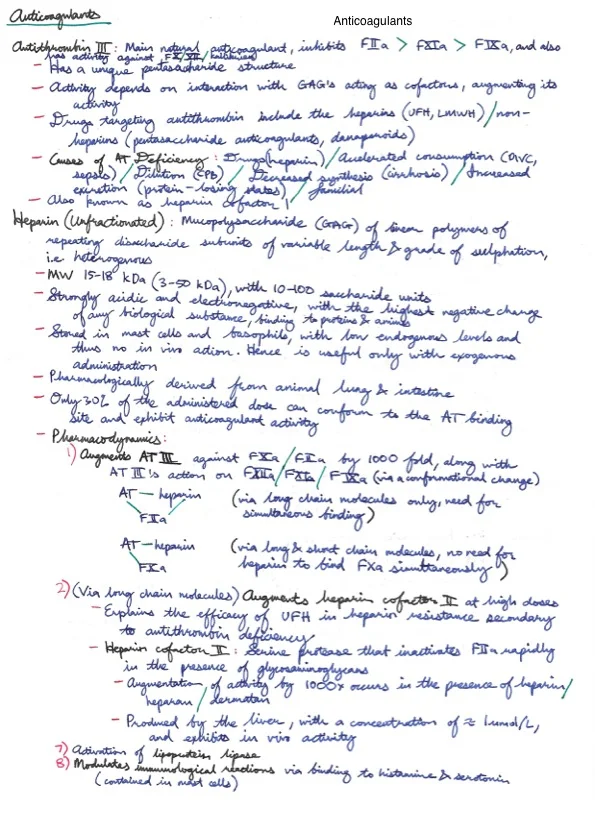 Anticoagulants
Anticoagulants
Antithrombin III: Main natural anticoagulant, inhibits FIIa > FXIa > FIXa, and also
has activity against FX/VII/kallikrein
- Has a unique pentasaccharide structure
- Activity depends on interaction with GAG's acting as cofactors, augmenting its
activity
- Drugs targeting antithrombin include the heparins (UFH, LMWH)/non-
heparins (pentasaccharide anticoagulants, danaparoids)
- Causes of AT Deficiency: Drugs (heparin)/Accelerated consumption (DIVC,
sepsis)/Dilution (CPB)/Decreased synthesis (cirrhosis)/Increased
excretion (protein-losing states)/familial
- Also known as heparin cofactor 1
Heparin (Unfractionated): Mucopolysaccharide (GAG) of linear polymers of
repeating disaccharide subunits of variable length & grade of sulphation,
i.e. heterogenous
- MW 15-18 kDa (3-50 kDa), with 10-100 saccharide units
- Strongly acidic and electronegative, with the highest negative charge
of any biological substance, binding to proteins & amines
- Stored in mast cells and basophils, with low endogenous levels and
thus no in vivo action. Hence is useful only with exogenous
administration
- Pharmacologically derived from animal lung & intestine
- Only 30% of the administered dose can conform to the AT binding
site and exhibit anticoagulant activity
- Pharmacodynamics:
1) Augments AT III against FXa/FIIa by 1000 fold, along with
AT III's action on FXIIa/FXIa/FIXa (via a conformational change)
AT — heparin (via long chain molecules only, need for
FIIa simultaneous binding)
AT — heparin (via long & short chain molecules, no need for
FXa heparin to bind FXa simultaneously)
2) (Via long chain molecules) Augments heparin cofactor II at high doses
- Explains the efficacy of UFH in heparin resistance secondary
to antithrombin deficiency
- Heparin cofactor II: Serine protease that inactivates FIIa rapidly
in the presence of glycosaminoglycans
- Augmentation of activity by 1000x occurs in the presence of heparin/
heparan/dermatan
- Produced by the liver, with a concentration of ≈ 1umol/L,
and exhibits in vivo activity
7) Activation of lipoprotein lipase
8) Modulates immunological reactions via binding to histamine & serotonin
(contained in mast cells)